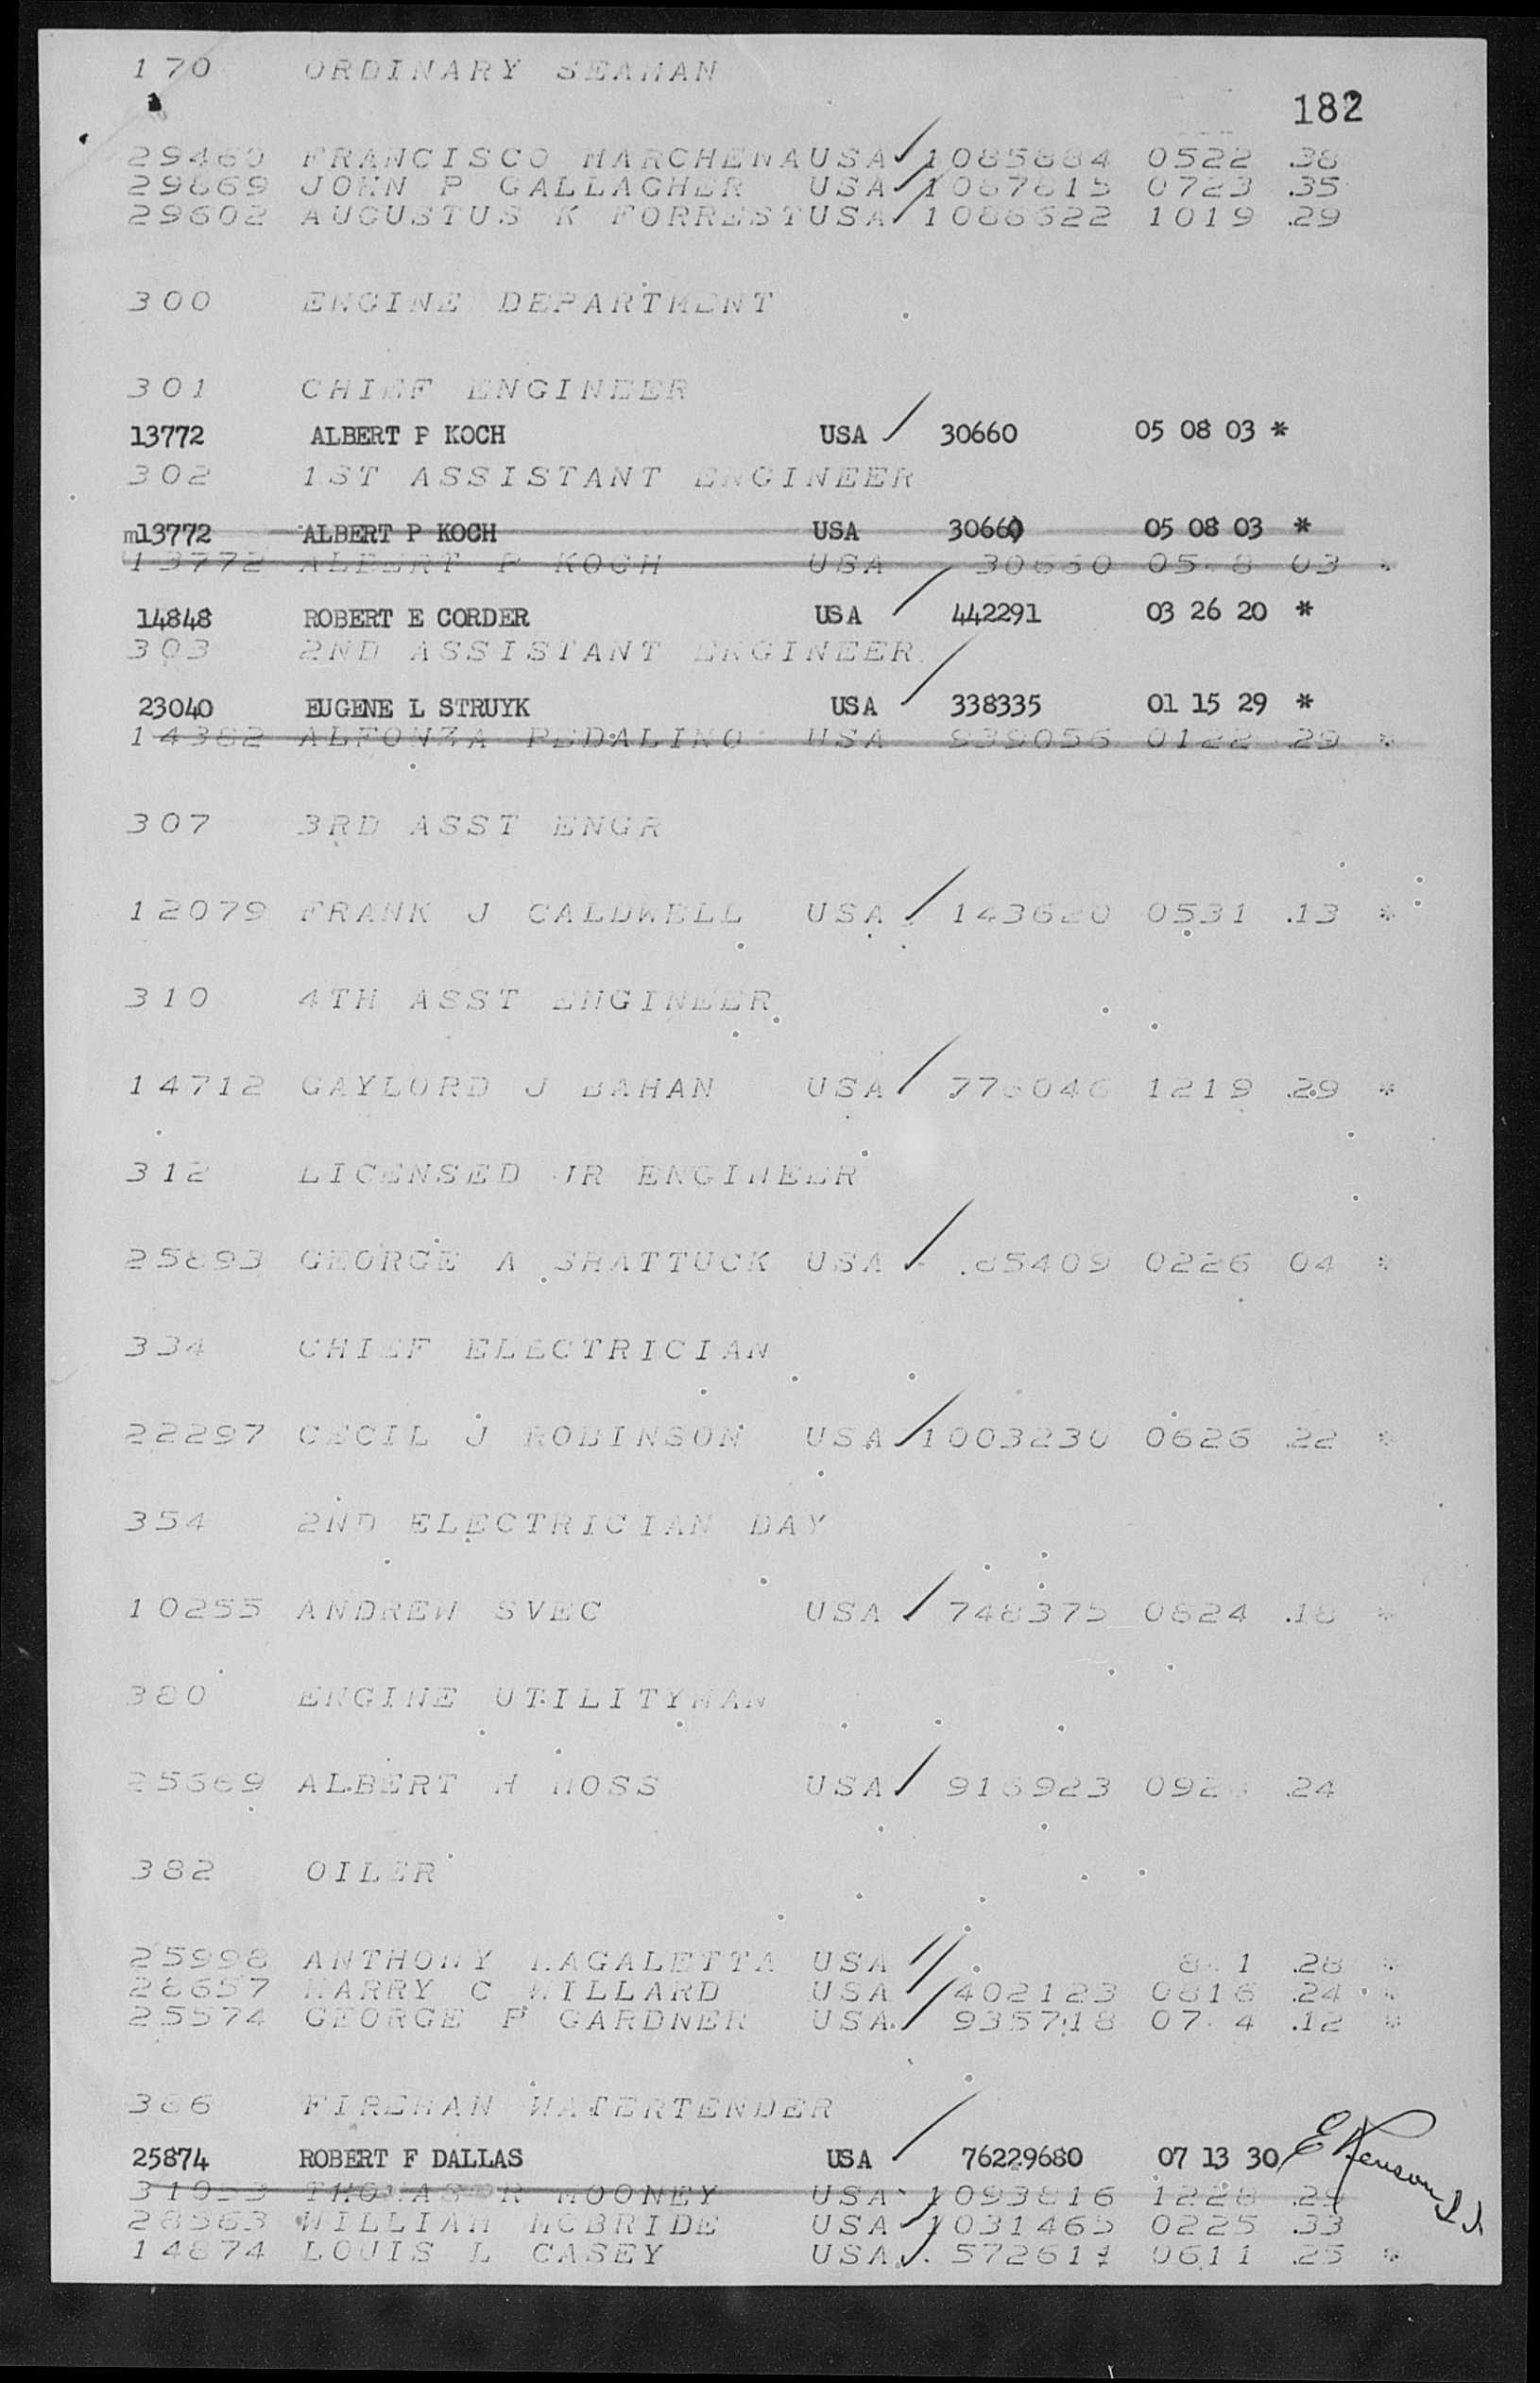 170 ORDINARY SEAMAN
182
29460 FRANCISCO MARCHENA USA 1085884 0522 .38
29869 JOHN P GALLAGHER USA 1067815 0723 .35
29602 AUGUSTUS K FORREST USA 1086622 1019 .29
300 ENGINE DEPARTMENT
301 CHIEF ENGINEER
13772 ALBERT P KOCH USA 30660 05 08 03 *
302 1ST ASSISTANT ENGINEER
m13772 ALBERT P KOCH USA 30660 05 08 03 *
13772 ALBERT P KOCH USA 30660 05 8 03 *
14848 ROBERT E CORDER USA 442291 03 26 20 *
303 2ND ASSISTANT ENGINEER
23040 EUGENE L STRUYK USA 338335 01 15 29 *
14382 ALFONZA PEDALINO USA 939056 0122 .29 *
307 3RD ASST ENGR
12079 FRANK J CALDWELL USA 143620 0531 .13 *
310 4TH ASST ENGINEER
14712 GAYLORD J BAHAN USA 1219 .29 *
312 LICENSED JR ENGINEER
25893 GEORGE A SHATTUCK USA 85409 0226 04 *
334 CHIEF ELECTRICIAN
22297 CECIL J ROBINSON USA 1003230 0626 .22 *
354 2ND ELECTRICIAN DAY
10255 ANDREW SVEC USA 748375 0824 .18 *
380 ENGINE UTILITYMAN
25669 ALBERT H MOSS USA 916923 .24
382 OILER
25998 ANTHONY MAGALETTA USA 8 1 .28 *
28657 HARRY C WILLARD USA 402123 0816 .24 *
25574 GEORGE P GARDNER USA 935718 07 4 .12 *
386 FIREMAN WATERTENDER
25874 ROBERT F DALLAS USA 76229680 07 13 30
THOMAS R MOONEY USA 1093816 1228 .29
28563 WILLIAM MCBRIDE USA 1031465 0225 .33
14874 LOUIS L CASEY USA 572611 0611 .25 *